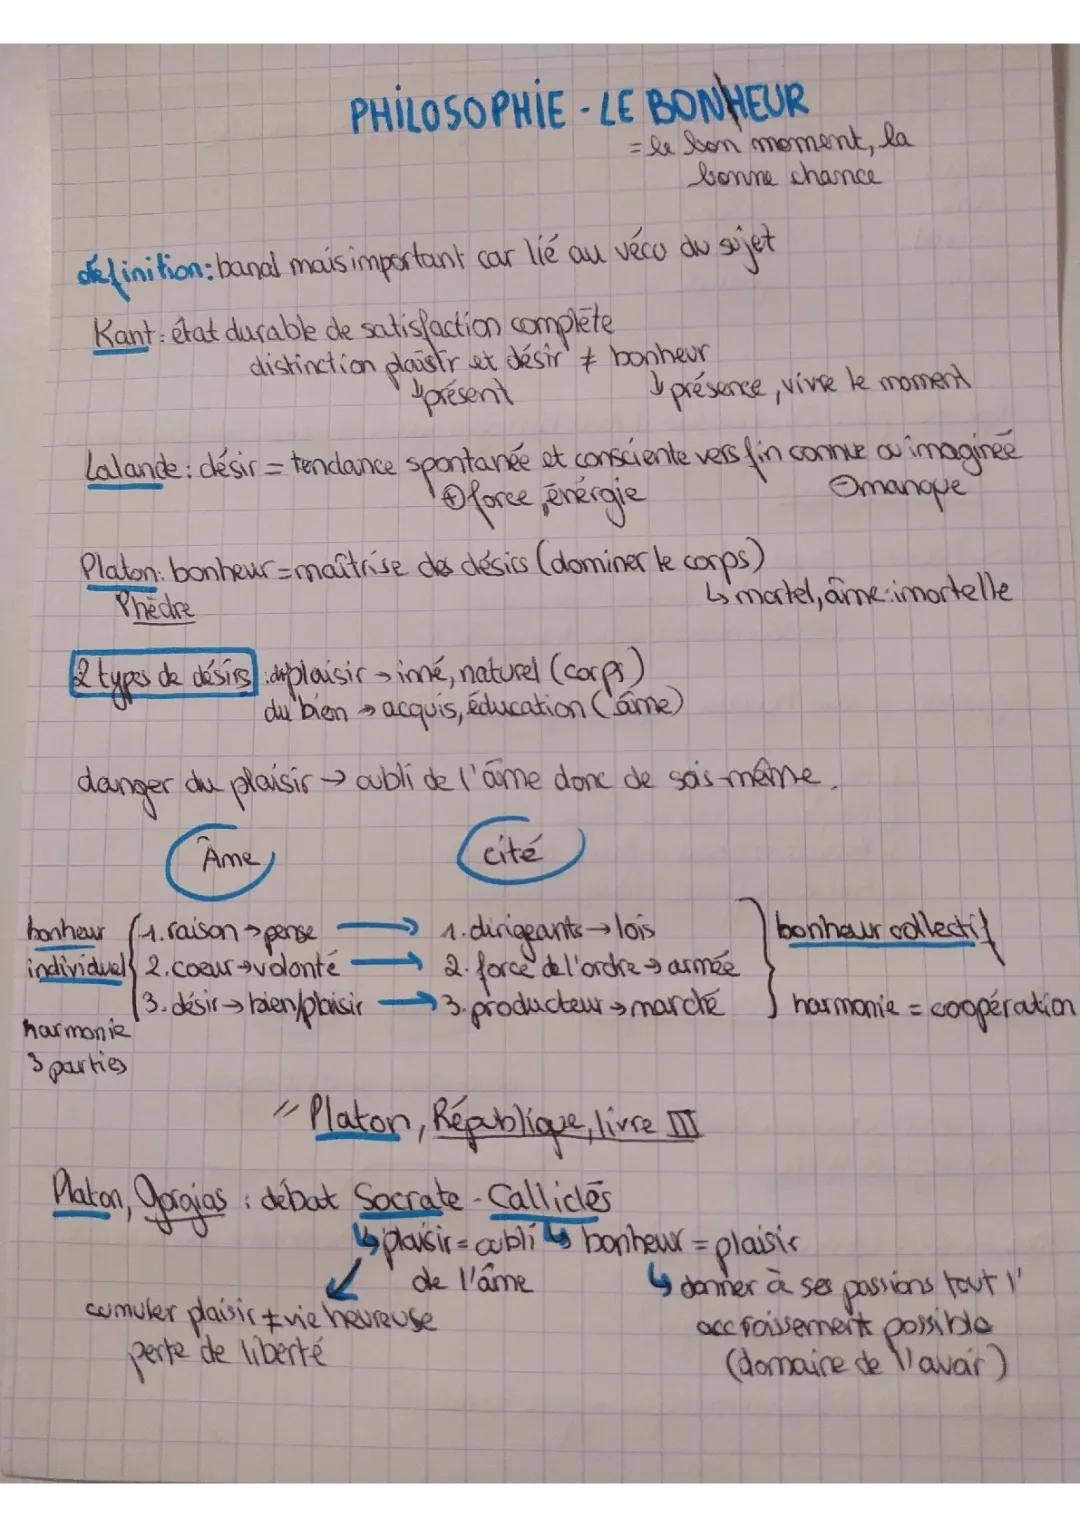 PHILOSOPHIE - LE BONHEUR
= le bon moment, la
bonne chance
définition: banal mais important car lié au véco du sujet
Kant: état durable de satisfaction complète
distinction plaisir et désir ≠ bonheur
↓ présent ↓ présence, vivre le moment
Lalande: désir = tendance spontanée et consciente vers fin connue ou imaginée
⊕ force, énérgie ⊖ manque
Platon: bonheur = maîtrise des désirs (dominer le corps)
Phèdre ↳ mortel, âme: imortelle
2 types de désirs: du plaisir → inné, naturel (corps)
du bien → acquis, éducation (âme)
danger du plaisir → oubli de l'âme donc de sois-même.
Âme cité
bonheur 1. raison → pense → 1. dirigeants → lois bonheur collectif
individuel 2. coeur → volonté → 2. force de l'ordre → armée
3. désir → bien/plaisir → 3. producteur → marché harmonie = coopération
harmonie
3 parties
// Platon, République, livre III
Platon, Gorgias: débat Socrate - Calliclès
↳ plaisir = oubli ↳ bonheur = plaisir
de l'âme ↳ donner à ses passions tout l'
cumuler plaisir ≠ vie heureuse accroissement possible
perte de liberté (domaine de l'avoir)